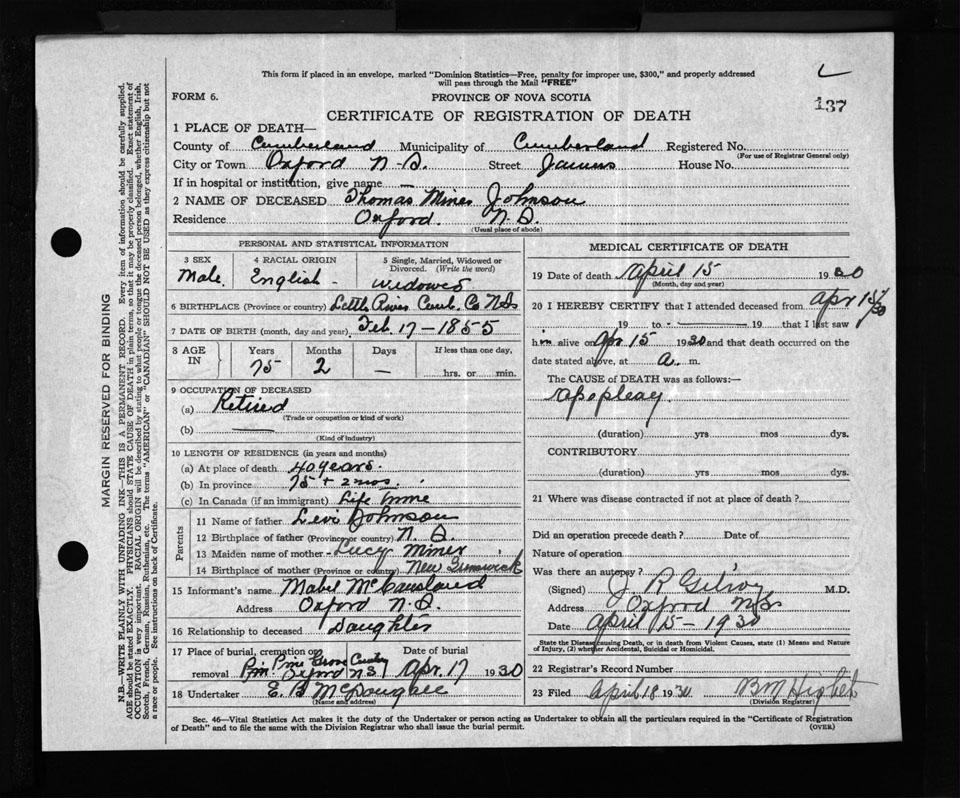 This form if placed in an envelope, marked "Dominion Statistics—Free, penalty for improper use, $300," and properly addressed
will pass through the Mail "FREE"
FORM 6.
PROVINCE OF NOVA SCOTIA
137
CERTIFICATE OF REGISTRATION OF DEATH
1 PLACE OF DEATH—
County of Cumberland Municipality of Cumberland Registered No.
(For use of Registrar General only)
City or Town Oxford N.S. Street House No.
If in hospital or institution, give name —
2 NAME OF DECEASED Thomas Miner Johnson
Residence Oxford. N.S.
(Usual place of abode)
PERSONAL AND STATISTICAL INFORMATION
3 SEX
Male.
4 RACIAL ORIGIN
English
5 Single, Married, Widowed or
Divorced. (Write the word)
Widowed
6 BIRTHPLACE (Province or country) Little River Cumb. Co N.S
7 DATE OF BIRTH (month, day and year) Feb 17 - 1855
8 AGE IN
Years Months Days If less than one day,
75 2 — hrs. or min.
9 OCCUPATION OF DECEASED
(a) Retired
(Trade or occupation or kind of work)
(b) —
(Kind of industry)
10 LENGTH OF RESIDENCE (in years and months)
(a) At place of death 40 years.
(b) In province 75 + 2 mos.
(c) In Canada (if an immigrant) Life time
Parents
11 Name of father Levi Johnson
12 Birthplace of father (Province or country) N.S.
13 Maiden name of mother Lucy Miner
14 Birthplace of mother (Province or country) New Brunswick
15 Informant's name Mabel McCausland
Address Oxford N.S.
16 Relationship to deceased Daughter
17 Place of burial, cremation or
removal Pine Grove Cemetery
Oxford N.S.
Date of burial
Apr. 17 1930
18 Undertaker E. B McDougall
(Name and address)
MEDICAL CERTIFICATE OF DEATH
19 Date of death April 15 1930
(Month, day and year)
20 I HEREBY CERTIFY that I attended deceased from Apr 15/30
19 to — 19 that I last saw
him alive on Apr 15 1930 and that death occurred on the
date stated above, at a. m.
The CAUSE of DEATH was as follows:—
Apoplexy
(duration) yrs mos dys.
CONTRIBUTORY
(duration) yrs mos dys.
21 Where was disease contracted if not at place of death?
Did an operation precede death? Date of
Nature of operation
Was there an autopsy?
(Signed) J R Gilroy M.D.
Address Oxford N.S
Date April 15 - 1930
State the Disease causing Death, or in death from Violent Causes, state (1) Means and Nature
of Injury, (2) whether Accidental, Suicidal or Homicidal.
22 Registrar's Record Number
23 Filed April 18 1930
(Division Registrar)
Sec. 46—Vital Statistics Act makes it the duty of the Undertaker or person acting as Undertaker to obtain all the particulars required in the "Certificate of Registration
of Death" and to file the same with the Division Registrar who shall issue the burial permit.
(OVER)
MARGIN RESERVED FOR BINDING
N.B.—WRITE PLAINLY WITH UNFADING INK—THIS IS A PERMANENT RECORD. Every item of information should be carefully supplied.
AGE should be stated EXACTLY. PHYSICIANS should STATE CAUSE OF DEATH in plain terms, so that it may be properly classified. Exact statement of
OCCUPATION is very important. RACIAL ORIGIN will be described by stating to what people or tongue the deceased person belonged, whether English, Irish,
Scotch, French, German, Russian, Ruthenian, etc. The terms "AMERICAN" or "CANADIAN" SHOULD NOT BE USED as they express citizenship but not
a race or people. See instructions on back of Certificate.